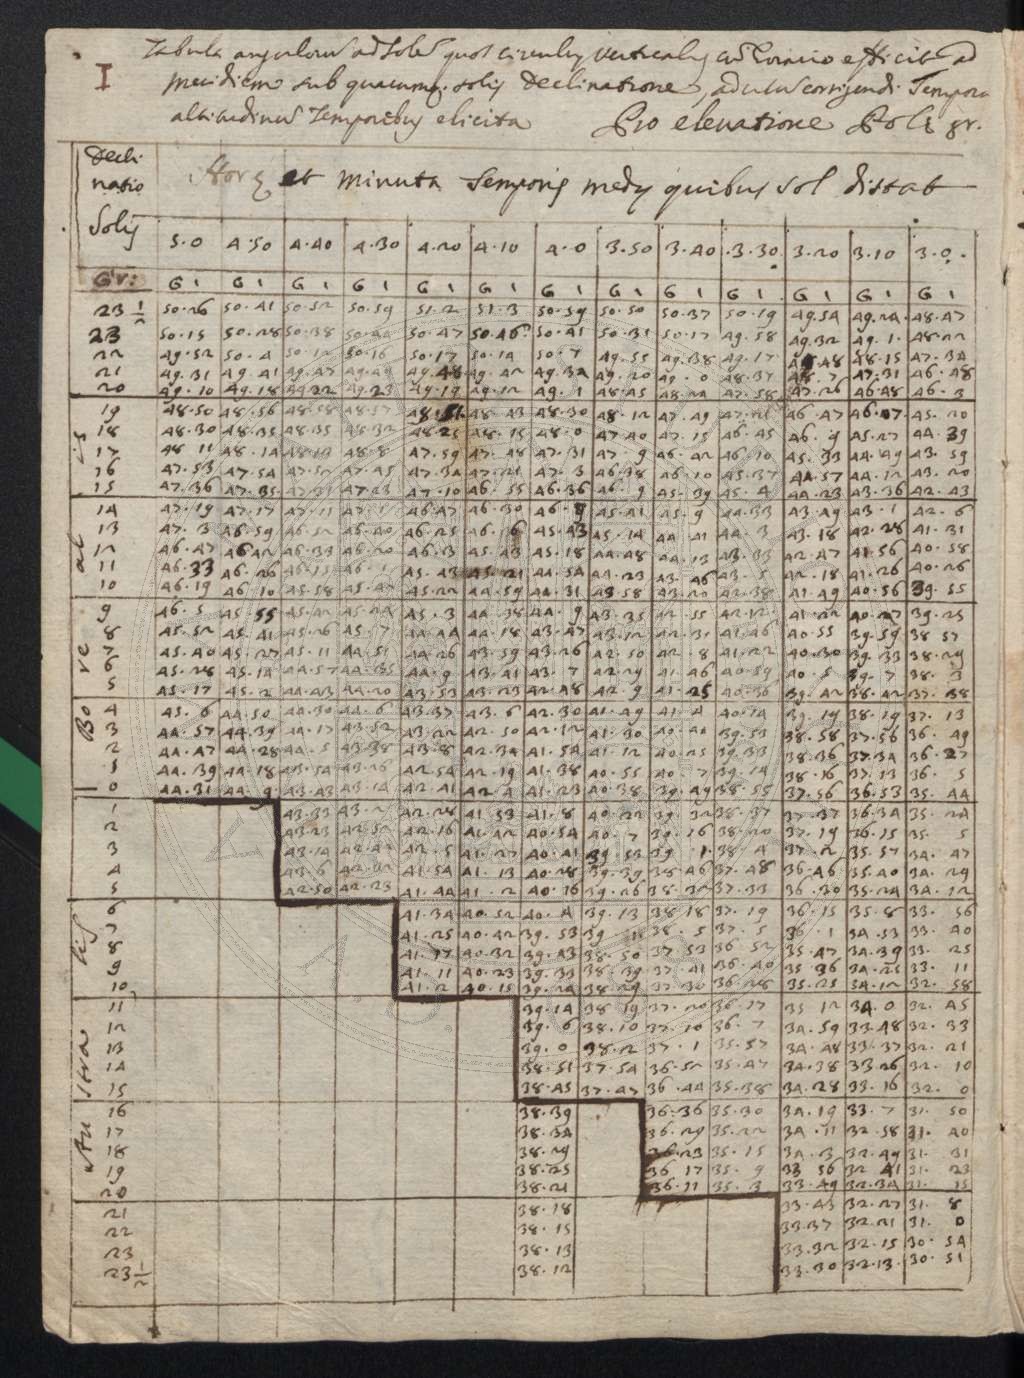 I
Tabula angulorum ad Solem quos circulus verticalis cum horario efficit ad
meridiem sub quacumq. solis Declinatione, ad usum corrigendi Tempora
altitudinum Temporibus elicita Pro elevatione Poli gr.
Decli
natio
Solis
Horę et minuta Temporis medij quibus sol distat
5·0 4·50 4·40 4·30 4·20 4·10 4·0 3·50 3·40 3·30 3·20 3·10 3·0
Gr: G ı G ı G ı G ı G ı G ı G ı G ı G ı G ı G ı G ı G ı
23 1/2 50·26 50·41 50·52 50·59 51·2 51·3 50·59 50·50 50·37 50·19 49·54 49·24 48·47
23 50·15 50·28 50·38 50·44 50·47 50·46 50·41 50·31 50·17 49·58 49·32 49·1 48·22
22 49·52 50·4 50·12 50·16 50·17 50·14 50·7 49·55 49·38 49·17 48·48 48·15 47·34
21 49·31 49·41 49·47 49·49 49·48 49·42 49·34 49·20 49·0 48·37 48·7 47·31 46·48
20 49·10 49·18 49·22 49·23 49·19 49·12 49·1 48·45 48·24 47·58 47·26 46·48 46·3
19 48·50 48·56 48·58 48·57 48·51 48·43 48·30 48·12 47·49 47·21 46·47 46·07 45·20
18 48·30 48·35 48·35 48·32 48·25 48·15 48·0 47·40 47·15 46·45 46·9 45·27 44·39
17 48·11 48·14 48·13 48·8 47·59 47·48 47·31 47·9 46·42 46·10 45·33 44·49 43·59
16 47·53 47·54 47·52 47·45 47·34 47·21 47·3 46·38 46·10 45·37 44·57 44·12 43·20
15 47·36 47·35 47·31 47·23 47·10 46·55 46·36 46·9 45·39 45·4 44·23 43·36 42·43
14 47·19 47·17 47·11 47·1 46·47 46·30 46·9 45·41 45·9 44·33 43·49 43·1 42·6
13 47·3 46·59 46·52 46·40 46·25 46·16 45·43 45·14 44·41 44·3 43·18 42·28 41·31
12 46·47 46·42 46·33 46·20 46·3 45·43 45·18 44·48 44·13 43·33 42·47 41·56 40·58
11 46·33 46·26 46·15 46·1 45·43 45·21 44·54 44·23 43·46 43·5 42·18 41·26 40·26
10 46·19 46·10 45·58 45·42 45·22 44·59 44·31 43·58 43·20 42·38 41·49 40·56 39·55
9 46·5 45·55 45·42 45·24 45·3 44·38 44·9 43·35 42·55 42·12 41·22 40·27 39·25
8 45·52 45·41 45·26 45·7 44·44 44·18 43·47 43·12 42·31 41·46 40·55 39·59 38·57
7 45·40 45·27 45·11 44·51 44·26 43·59 43·26 42·50 42·8 41·22 40·30 39·33 38·29
6 45·28 45·14 44·57 44·35 44·9 43·41 43·7 42·29 41·46 40·59 40·5 39·7 38·3
5 45·17 45·2 44·43 44·20 43·53 43·23 42·48 42·9 41·25 40·36 39·42 38·42 37·38
4 45·6 44·50 44·30 44·6 43·37 43·6 42·30 41·49 41·4 40·14 39·19 38·19 37·13
3 44·57 44·39 44·17 43·52 43·22 42·50 42·12 41·30 40·44 39·53 38·58 37·56 36·49
2 44·47 44·28 44·5 43·38 43·8 42·34 41·54 41·12 40·25 39·33 38·36 37·34 36·27
1 44·39 44·18 43·54 43·26 42·54 42·19 41·38 40·55 40·7 39·14 38·16 37·13 36·5
0 44·31 44·9 43·43 43·14 42·41 42·4 41·23 40·38 39·49 38·55 37·56 36·53 35·44
1 43·33 43·2 42·28 41·53 41·8 40·22 39·32 38·37 37·37 36·34 35·24
2 43·23 42·52 42·16 41·42 40·54 40·7 39·16 38·20 37·19 36·15 35·5
3 43·14 42·42 42·5 41·27 40·41 39·53 39·1 38·4 37·2 35·57 34·47
4 43·6 42·32 41·54 41·13 40·28 39·39 38·46 37·48 36·46 35·40 34·29
5 42·50 42·23 41·44 41·2 40·16 39·26 38·32 37·33 36·30 35·24 34·12
6 41·34 40·52 40·4 39·13 38·18 37·19 36·15 35·8 33·56
7 41·25 40·42 39·53 39·1 38·5 37·5 36·1 34·53 33·40
8 41·17 40·32 39·43 38·50 37·53 36·52 35·47 34·39 33·25
9 41·11 40·23 39·33 38·39 37·41 36·40 35·36 34·25 33·11
10 41·2 40·15 39·24 38·29 37·30 36·28 35·25 34·12 32·58
11 39·14 38·19 37·20 36·17 35·12 34·0 32·45
12 39·6 38·10 37·10 36·7 34·59 33·48 32·33
13 39·0 38·2 37·1 35·57 34·48 33·37 32·21
14 38·51 37·54 36·52 35·47 34·38 33·26 32·10
15 38·45 37·47 36·44 35·38 34·28 33·16 32·0
16 38·39 36·36 35·30 34·19 33·7 31·50
17 38·34 36·29 35·22 34·11 32·58 31·40
18 38·29 36·23 35·15 34·3 32·49 31·31
19 38·25 36·17 35·9 33·56 32·41 31·23
20 38·21 36·11 35·3 33·49 32·34 31·15
21 38·18 33·43 32·27 31·8
22 38·15 33·37 32·21 31·0
23 38·13 33·32 32·15 30·54
23 1/2 38·12 33·30 32·13 30·51
Bo re al is
Au stra lis